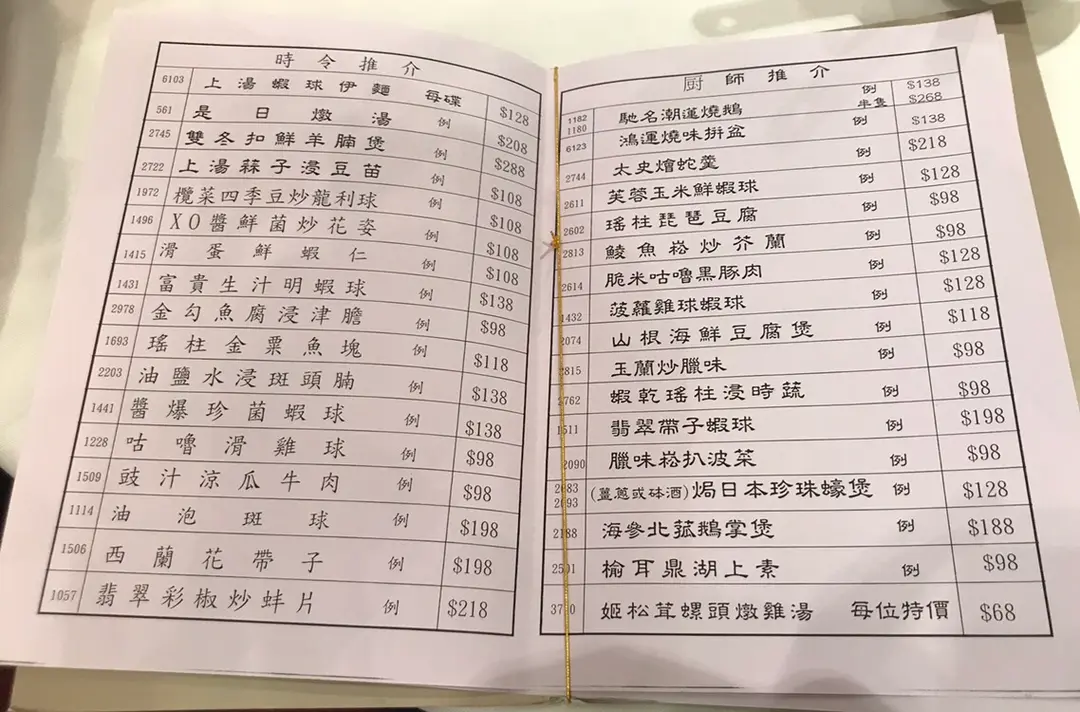 時令推介
6103 上湯蝦球伊麵 每碟 $128
561 是日燉湯 例 $208
2745 雙冬扣鮮羊腩煲 例 $288
2722 上湯蒜子浸豆苗 例 $108
1972 欖菜四季豆炒龍利球 例 $108
1496 XO醬鮮菌炒花姿 例 $108
1415 滑蛋鮮蝦仁 例 $108
1431 富貴生汁明蝦球 例 $138
2978 金勾魚腐浸津膽 例 $98
1693 瑤柱金粟魚塊 例 $118
2203 油鹽水浸斑頭腩 例 $138
1441 醬爆珍菌蝦球 例 $138
1228 咕嚕滑雞球 例 $98
1509 豉汁涼瓜牛肉 例 $98
1114 油泡斑球 例 $198
1506 西蘭花帶子 例 $198
1057 翡翠彩椒炒蚌片 例 $218
厨師推介
1182 馳名潮蓮燒鵝 例 $138
1180 半隻 $268
6123 鴻運燒味拼盆 例 $138
2744 太史燴蛇羹 例 $218
2611 芙蓉玉米鮮蝦球 例 $128
2602 瑤柱琵琶豆腐 例 $98
2813 鯪魚崧炒芥蘭 例 $98
2614 脆米咕嚕黑豚肉 例 $128
1432 菠蘿雞球蝦球 例 $128
2074 山根海鮮豆腐煲 例 $118
2815 玉蘭炒臘味 例 $98
蝦乾瑤柱浸時蔬 例 $98
1511 翡翠帶子蝦球 例 $198
2090 臘味崧扒波菜 例 $98
(薑蔥或砵酒)焗日本珍珠蠔煲 例 $128
2188 海參北菰鵝掌煲 例 $188
榆耳鼎湖上素 例 $98
姬松茸螺頭燉雞湯 每位特價 $68